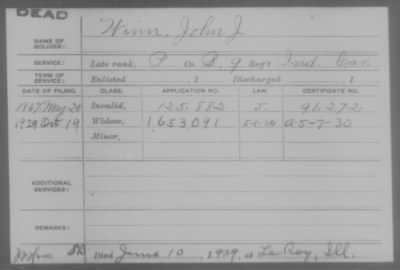 DEAD
NAME OF SOLDIER: Winn, John J.
SERVICE: Late rank, P Co. B, 9 Reg't Ind. Cav.
TERM OF SERVICE: Enlisted , 1 Discharged , 1
DATE OF FILING. CLASS. APPLICATION NO. LAW. CERTIFICATE NO.
1867 May 20 Invalid, 125.882 91.272
1929 Oct 19 Widow, 1,653,091 5-1-20 A5-7-30
Minor,
ADDITIONAL SERVICES:
REMARKS:
Died June 10, 1929, at LeRoy, Ill.